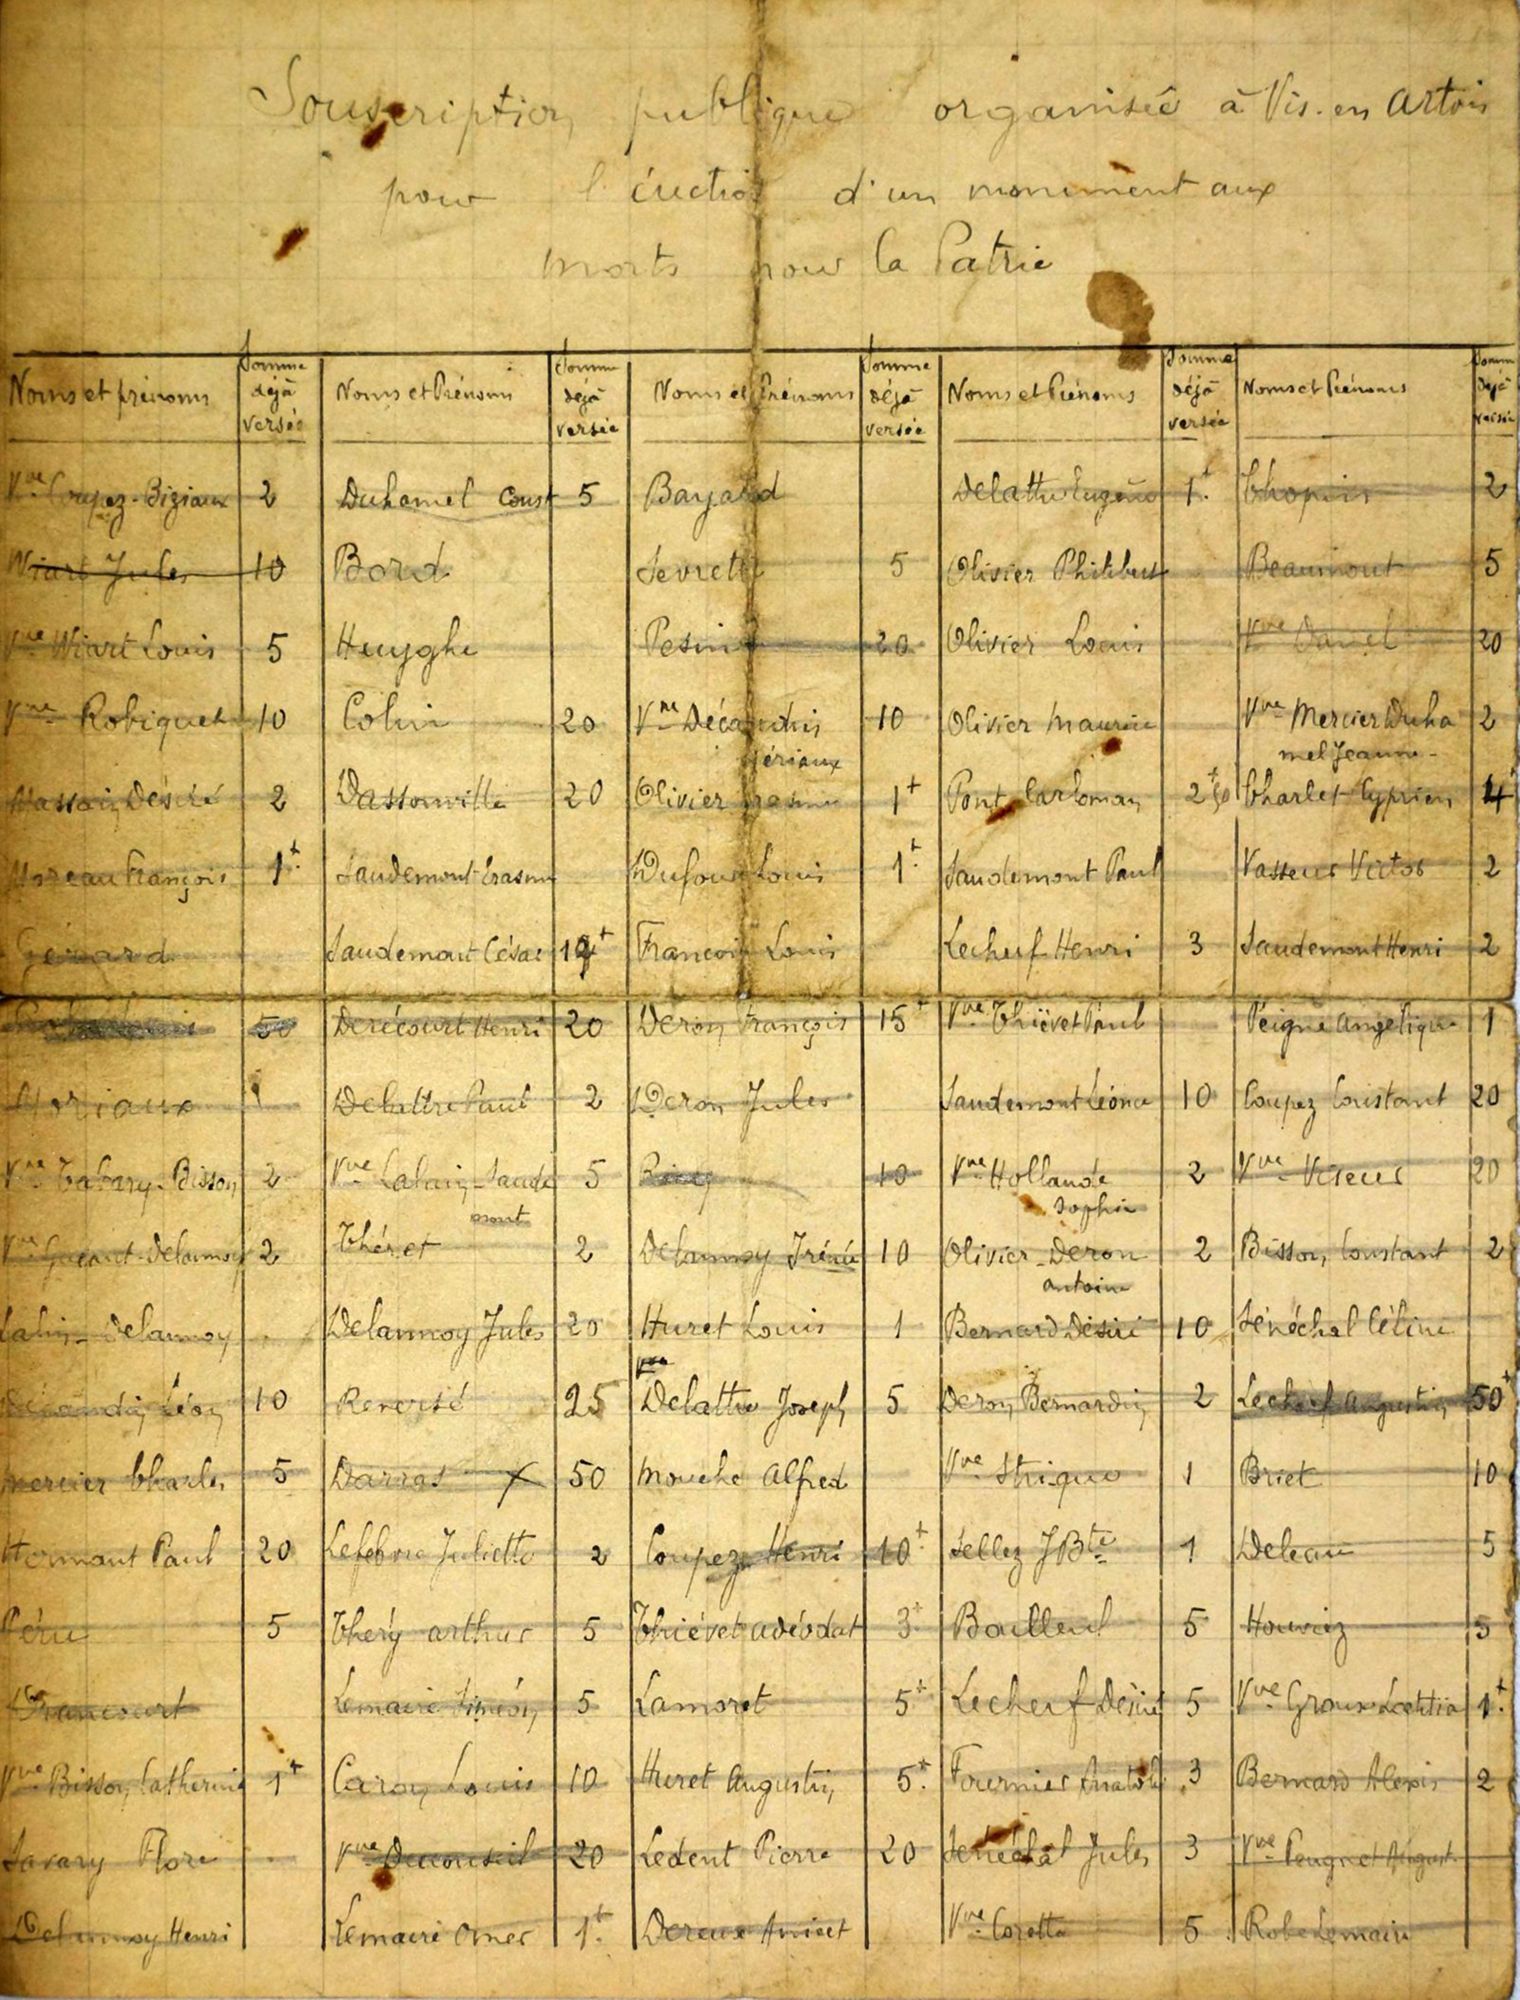 Souscription publique organisée à Vis-en Artois
pour l'érection d'un monument aux
morts pour la Patrie
Noms et prénoms Somme déjà versée Noms et Prénoms Somme déjà versée Noms et Prénoms Somme déjà versée Noms et Prénoms Somme déjà versée Noms et Prénoms Somme déjà versée
Vve Coupez-Biziaux 2 Duhamel Const 5 Bayard Delattre Eugène 1+ Chopin 2
Wiart Jules 10 Bord Sevrette 5 Olivier Philibert Beaumont 5
Vve Wiart Louis 5 Huyghe Pesin 20 Olivier Louis Vve 20
Vve Robiquet 10 Colin 20 Vve Décaudin 10 Olivier Maurice Vve Mercier Duha 2
mel Jeanne
Masson Désiré 2 Dassonville 20 Olivier Erasme 1+ Pont Carloman 2+50 Charlet Cyprien 4
Moreau François 1+ Saudemont Erasme Dufour Louis 1+ Saudemont Paul Vasseur Victor 2
Gérard Saudemont César 1+ François Louis Lecherf Henri 3 Saudemont Henri 2
50 Derécourt Henri 20 Deron François 15+ Vve Thiévet Paul Peigne Angélique 1
Mériaux Delattre Paul 2 Deron Jules Saudemont Léonce 10 Coupez Constant 20
Vve Tabary-Bisson 2 Vve Lalain-Saude 5 10 Vve Hollande 2 Vve Viseur 20
mont Sophie
Vve Guéant-Delannoy 2 Théret 2 Delannoy Irénée 10 Olivier-Deron 2 Bisson Constant 2
Antoine
Lalin-Delannoy Delannoy Jules 20 Huret Louis 1 Bernard Désiré 10 Sénéchal Céline
Décaudin Léon 10 Renersé 25 Vve Delattre Joseph 5 Deron Bernardin 2 Lecherf Augustin 50+
Mercier Charles 5 Darras x 50 Mouche Alfred Vve 1 Briet 10
Hermant Paul 20 Lefebvre Juliette 2 Coupez Henri 10+ Sellez J Bte 1 Deleau 5
Péru 5 Théry Arthur 5 Thiévet Adéodat 3+ Bailleul 5 Houriez 5
Francourt Lemaire Siméon 5 Lamoret 5+ Lecherf Désiré 5 Vve Groux Laetitia 1+
Vve Bisson Catherine 1+ Caron Louis 10 Huret Augustin 5+ Fournier Anatole 3 Bernard Alexis 2
Savary Flore Vve Duconseil 20 Ledent Pierre 20 Sénéchal Jules 3 Vve Peugnet August
Delannoy Henri Lemaire Omer 1+ Dereux Anicet Vve Corette 5 Robe Lemaire